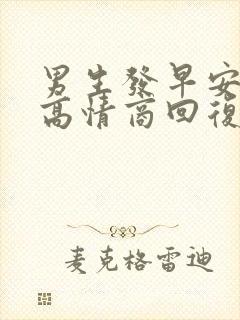 男生發早安
高情商回復
麦克格雷迪